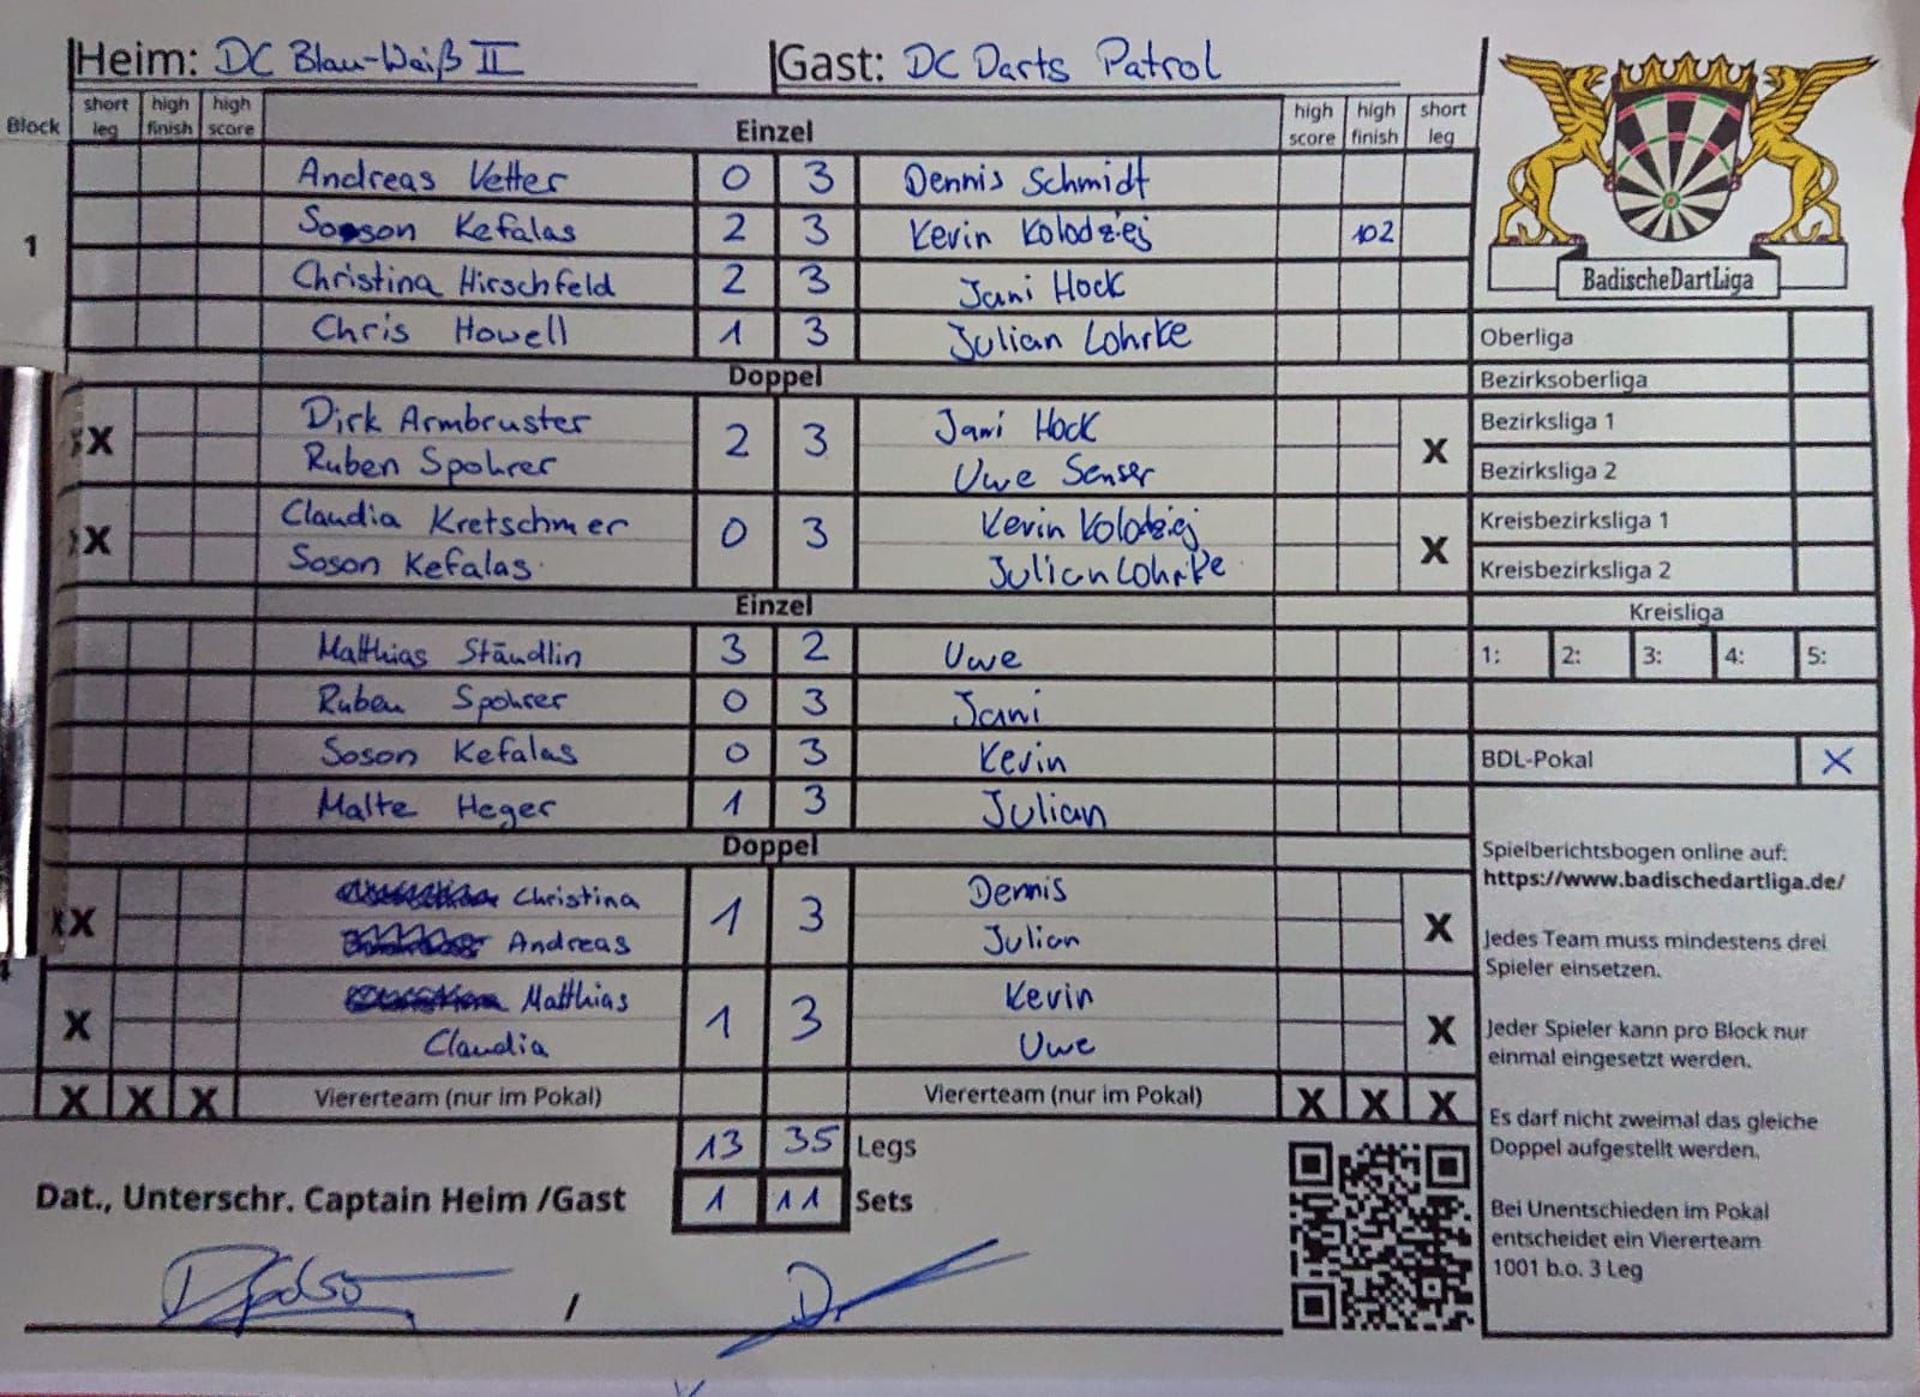 Heim: DC Blau-Weiß II Gast: DC Darts Patrol
Block short leg high finish high score Einzel high score high finish short leg
1
Andreas Vetter 0 3 Dennis Schmidt
Soson Kefalas 2 3 Kevin Kolodziej 102
Christina Hirschfeld 2 3 Jani Hock
Chris Howell 1 3 Julian Lohrke
Doppel
X Dirk Armbruster 2 3 Jani Hock X
Ruben Spohrer Uwe Senser
X Claudia Kretschmer 0 3 Kevin Kolodziej X
Soson Kefalas Julian Lohrke
Einzel
Matthias Ständlin 3 2 Uwe
Ruben Spohrer 0 3 Jani
Soson Kefalas 0 3 Kevin
Malte Heger 1 3 Julian
Doppel
X Christina 1 3 Dennis X
Andreas Julian
X Matthias 1 3 Kevin X
Claudia Uwe
X X X Viererteam (nur im Pokal) Viererteam (nur im Pokal) X X X
13 35 Legs
Dat., Unterschr. Captain Heim /Gast 1 11 Sets
/
BadischeDartLiga
Oberliga
Bezirksoberliga
Bezirksliga 1
Bezirksliga 2
Kreisbezirksliga 1
Kreisbezirksliga 2
Kreisliga
1: 2: 3: 4: 5:
BDL-Pokal X
Spielberichtsbogen online auf:
https://www.badischedartliga.de/
Jedes Team muss mindestens drei
Spieler einsetzen.
Jeder Spieler kann pro Block nur
einmal eingesetzt werden.
Es darf nicht zweimal das gleiche
Doppel aufgestellt werden.
Bei Unentschieden im Pokal
entscheidet ein Viererteam
1001 b.o. 3 Leg